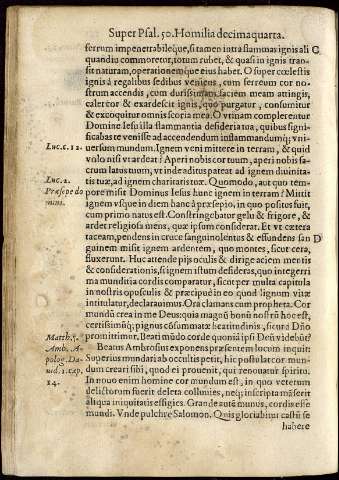 Super Psal. 50. Homilia decimaquarta.
ferrum impenetrabileque, si tamen intra flammas ignis ali C
quandiu commoretur, totum rubet, & quasi in ignis tran-
sit naturam, operationemque eius habet. O super cœlestis
ignis à regalibus sedibus veniens, cum ferreum cor no-
strum accendis, cum durissimam faciem meam attingis,
calet cor & exardescit ignis, quo purgatur, consumitur
& excoquitur omnis scoria mea. O vtinam complerentur
Domine Iesu illa flammantia desideria tua, quibus signifi-
Luc. c. 12. cabas te venisse ad accendendum inflammandumq; vni-
uersum mundum. Ignem veni mittere in terram, & quid
volo nisi vt ardeat? Aperi nobis cor tuum, aperi nobis sa-
crum latus tuum, vt inde aditus pateat ad ignem diuinita-
Luc. 2. tis tuæ, ad ignem charitatis tuæ. Quomodo, aut quo tem-
Præsepe do pore misit Dominus Iesus hunc ignem in terram? Mittit
mini. ignem vsque in diem hanc à præsepio, in quo positus fuit,
cum primo natus est. Constringebatur gelu & frigore, &
ardet religiosa mens, quæ ipsum considerat. Et vt cætera
taceam, pendens in cruce sanguinolentus & effundens san D
guinem misit ignem ardentem, quo montes, sicut cera,
fluxerunt. Huc attende pijs oculis & dirige aciem mentis
& considerationis, si ignem istum desideras, quo integerri
ma munditia cordis comparatur, sicut per multa capitula
in nostris opusculis & præcipuè in eo quod lignum vitæ
intitulatur, declarauimus. Ora clamans cum propheta. Cor
mundũ crea in me Deus: quia magnũ bonũ nostrũ hoc est,
certissimũq; pignus cõsummatæ beatitudinis, sicut à Dño
Matth. 5. promittimur. Beati mũdo corde quoniã ipsi Deũ videbũt?
Amb. A- Beatus Ambrosius exponens præsentem locum inquit
polog. Da- Superius mundari ab occultis petit, hic postulat cor mun-
uid. 1. cap. dum creari sibi, quod ei prouenit, qui renouatur spiritu.
14. In nouo enim homine cor mundum est, in quo veterum
delictorum fuerit deleta colluuies, neq; inscripta mãserit
aliqua iniquitatis effigies. Grande autē munus, cordis esse
mundi. Vnde pulchrè Salomon. Quis gloriabitur castũ se
habere